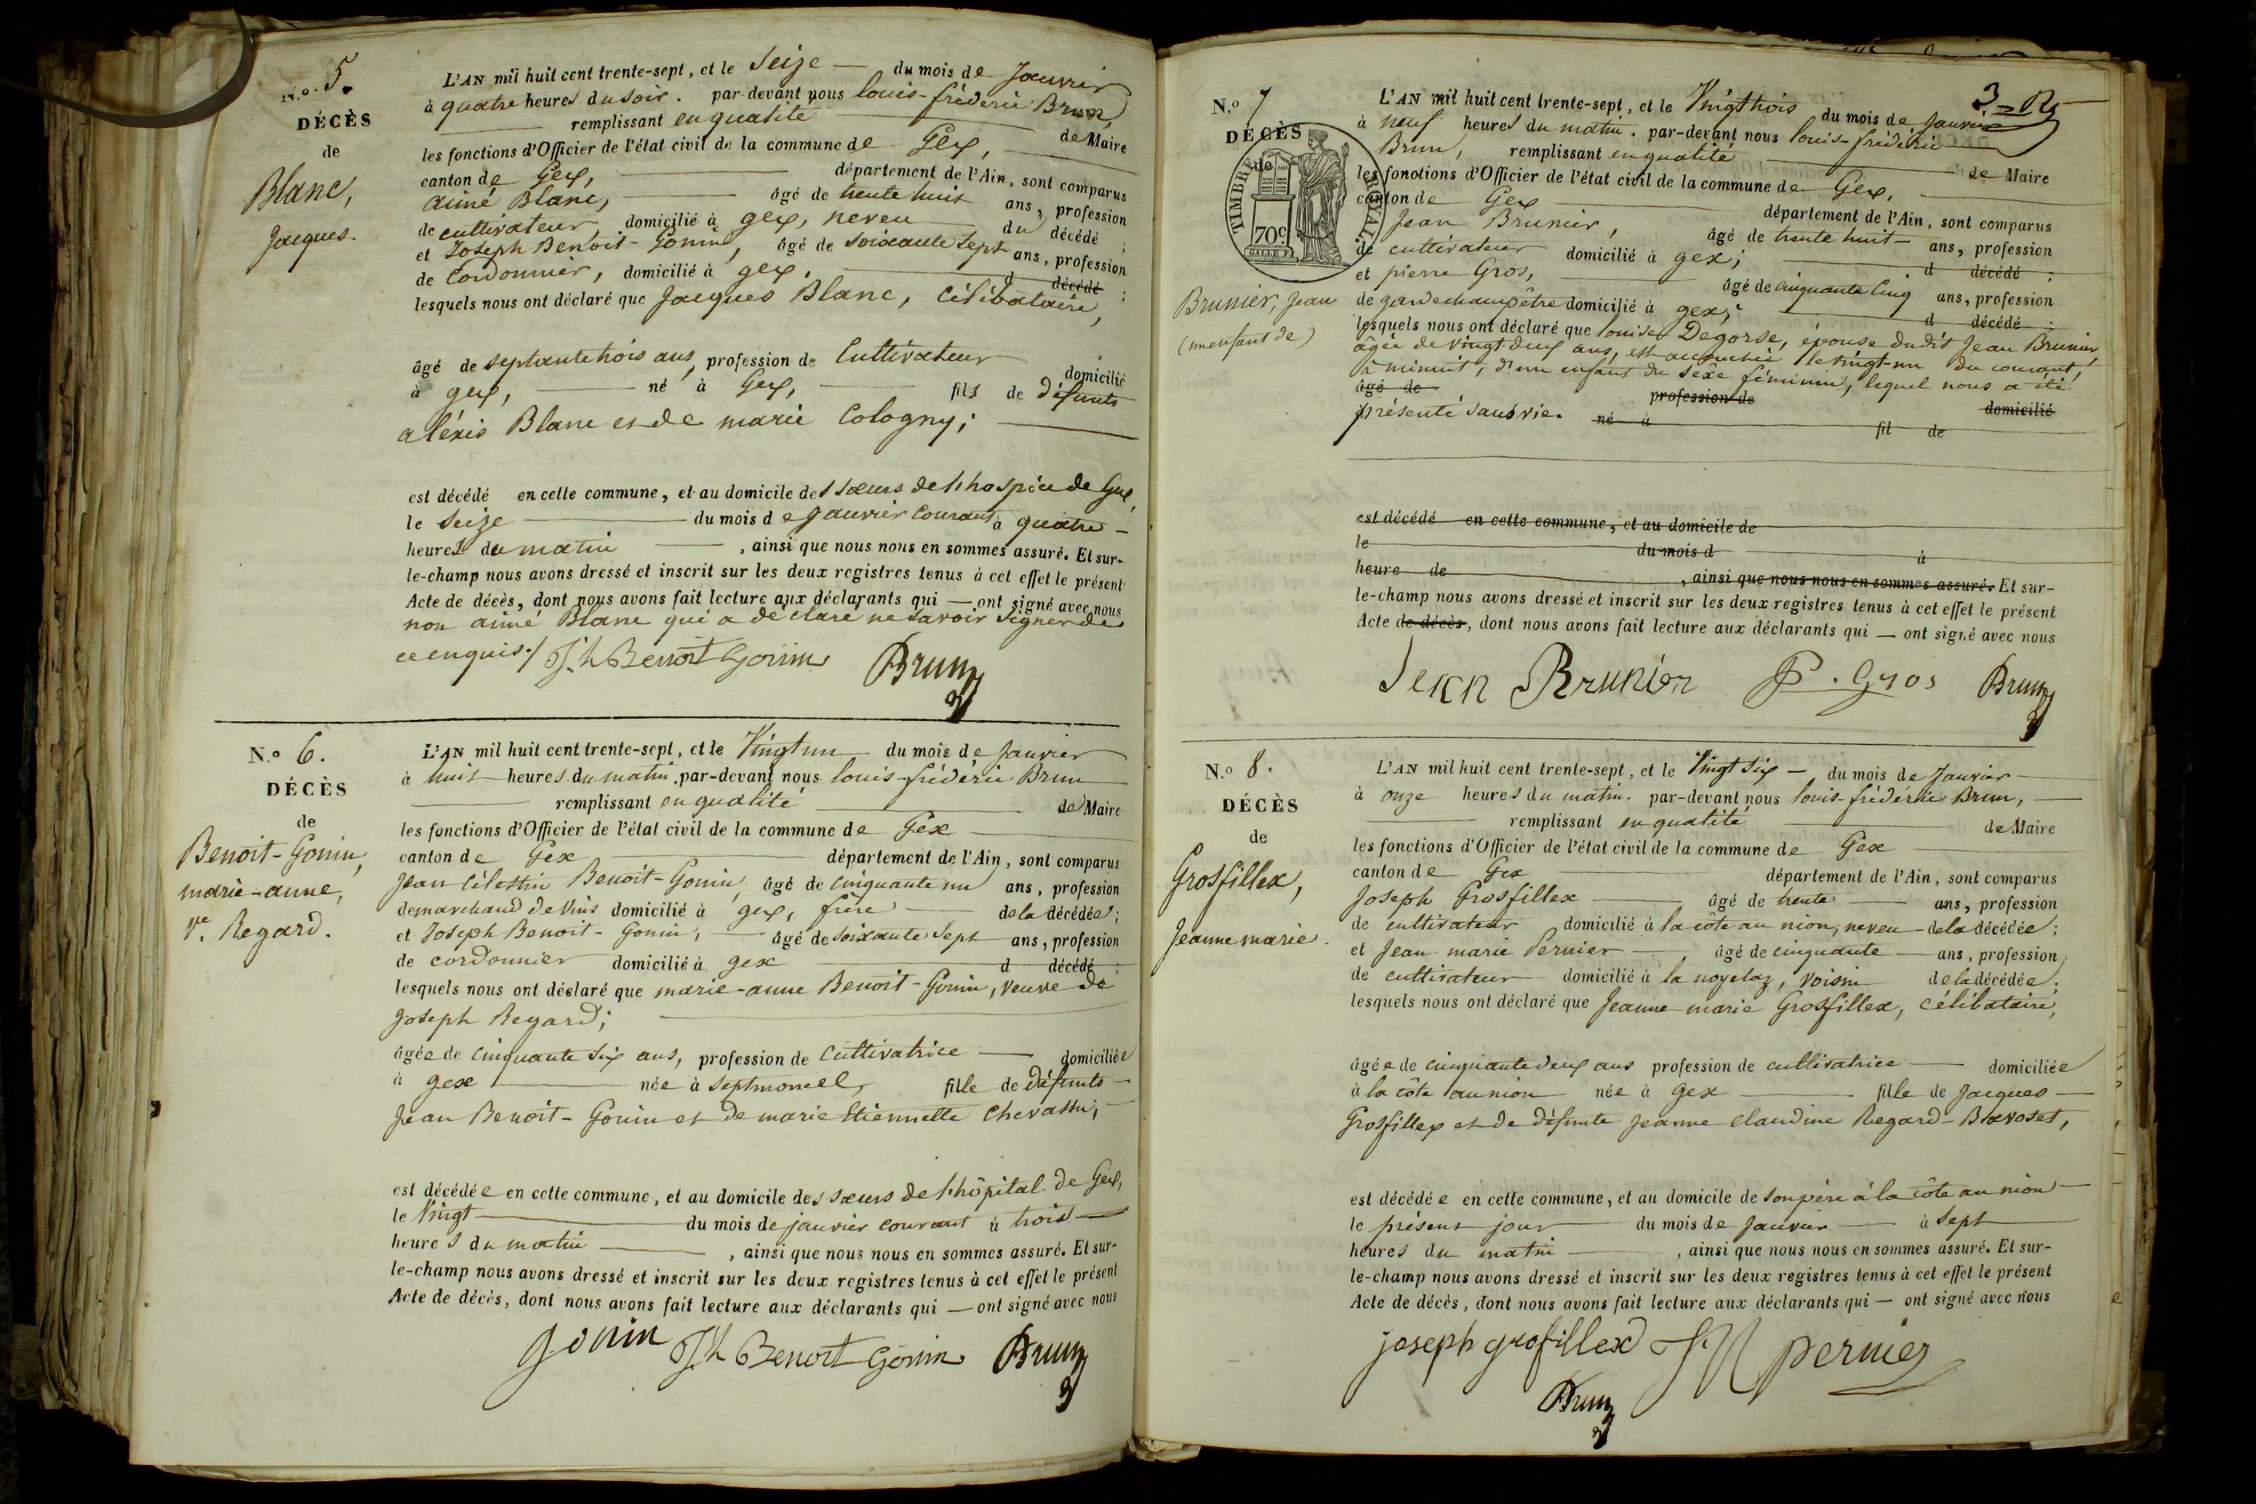 N.o 5.
DÉCÈS
de
Blanc,
Jacques.
L'AN mil huit cent trente-sept, et le Seize du mois de Janvier
à quatre heures du soir. par-devant nous louis-fréderic Brun
remplissant en qualité de Maire
les fonctions d'Officier de l'état civil de la commune de Gex,
canton de Gex, département de l'Ain, sont comparus
aimé Blanc, âgé de trente huit ans, profession
de cultivateur, domicilié à gex, neveu du décédé ;
et Joseph Benoit-Gonin, âgé de soixante sept ans, profession
de Cordonnier, domicilié à gex, d décédé ;
lesquels nous ont déclaré que Jacques Blanc, célibataire,
âgé de septante trois ans, profession de Cultivateur domicilié
à gex, né à Gex, fils de défunts
aléxis Blanc et de marie Cologny;
est décédé en cette commune, et au domicile des sœurs de l'hospice de Gex,
le seize du mois de Janvier courant à quatre
heures du matin, ainsi que nous nous en sommes assuré. Et sur-
le-champ nous avons dressé et inscrit sur les deux registres tenus à cet effet le présent
Acte de décès, dont nous avons fait lecture aux déclarants qui — ont signé avec nous
non aimé Blanc qui a déclaré ne savoir signer de
ce enquis./ Jh Benoit Gonin Brun
N.o 6.
DÉCÈS
de
Benoit-Gonin,
marie-anne,
Ve. Regard.
L'AN mil huit cent trente-sept, et le Vingt un du mois de Janvier
à huit heures du matin. par-devant nous louis-fréderic Brun
remplissant en qualité de Maire
les fonctions d'Officier de l'état civil de la commune de Gex
canton de Gex département de l'Ain, sont comparus
Jean Célestin Benoit-Gonin, âgé de cinquante un ans, profession
de marchand de vins domicilié à gex, frère de la décédée ;
et Joseph Benoit-Gonin, âgé de soixante sept ans, profession
de cordonnier domicilié à gex d décédé ;
lesquels nous ont déclaré que marie-anne Benoit-Gonin, veuve de
Joseph Regard;
âgée de cinquante six ans, profession de Cultivatrice domiciliée
à gex née à septmoncel, fille de défunts
Jean Benoit-Gonin et de marie Etiennette Chevassu,
est décédée en cette commune, et au domicile des sœurs de l'hôpital de Gex,
le Vingt du mois de janvier courant à trois
heures du matin, ainsi que nous nous en sommes assuré. Et sur-
le-champ nous avons dressé et inscrit sur les deux registres tenus à cet effet le présent
Acte de décès, dont nous avons fait lecture aux déclarants qui — ont signé avec nous
gonin Jh Benoit Gonin Brun
N.o 7
DÉCÈS
de
TIMBRE ROYAL.
70c
Brunier, Jean
(un enfant de)
L'AN mil huit cent trente-sept, et le Vingt trois du mois de Janvier
à neuf heures du matin. par-devant nous louis-fréderic
Brun, remplissant en qualité de Maire
les fonctions d'Officier de l'état civil de la commune de Gex,
canton de Gex département de l'Ain, sont comparus
Jean Brunier, âgé de trente huit ans, profession
de cultivateur domicilié à gex; d décédé ;
et pierre Gros, âgé de cinquante cinq ans, profession
de garde champêtre domicilié à gex; d décédé ;
lesquels nous ont déclaré que louise Degorse, épouse dudit Jean Brunier
âgée de vingt deux ans, est accouchée le vingt-un du courant,
à minuit, d'un enfant du sexe féminin, lequel nous a été
âgé de profession de domicilié
présenté sans vie. né à fil de
est décédé en cette commune, et au domicile de
le du mois d à
heure de, ainsi que nous nous en sommes assuré. Et sur-
le-champ nous avons dressé et inscrit sur les deux registres tenus à cet effet le présent
Acte de décès, dont nous avons fait lecture aux déclarants qui — ont signé avec nous
Jean Brunier P. Gros Brun
N.o 8.
DÉCÈS
de
Grosfillex,
Jeanne marie.
L'AN mil huit cent trente-sept, et le Vingt six du mois de Janvier
à onze heures du matin. par-devant nous louis-fréderic Brun,
remplissant en qualité de Maire
les fonctions d'Officier de l'état civil de la commune de Gex
canton de Gex département de l'Ain, sont comparus
Joseph Grosfillex âgé de trente ans, profession
de cultivateur domicilié à la côte au nion, neveu de la décédée ;
et Jean marie Pernier, âgé de cinquante ans, profession
de cultivateur domicilié à la noyelaz, voisin de la décédée ;
lesquels nous ont déclaré que Jeanne marie Grosfillex, célibataire,
âgée de cinquante deux ans profession de cultivatrice domiciliée
à la côte au nion née à Gex fille de Jacques
Grosfillex et de défunte Jeanne Claudine Regard-
est décédée en cette commune, et au domicile de son père à la côte au nion
le présent jour du mois de Janvier à sept
heures du matin, ainsi que nous nous en sommes assuré. Et sur-
le-champ nous avons dressé et inscrit sur les deux registres tenus à cet effet le présent
Acte de décès, dont nous avons fait lecture aux déclarants qui — ont signé avec nous
joseph grofillex J. M pernier
Brun